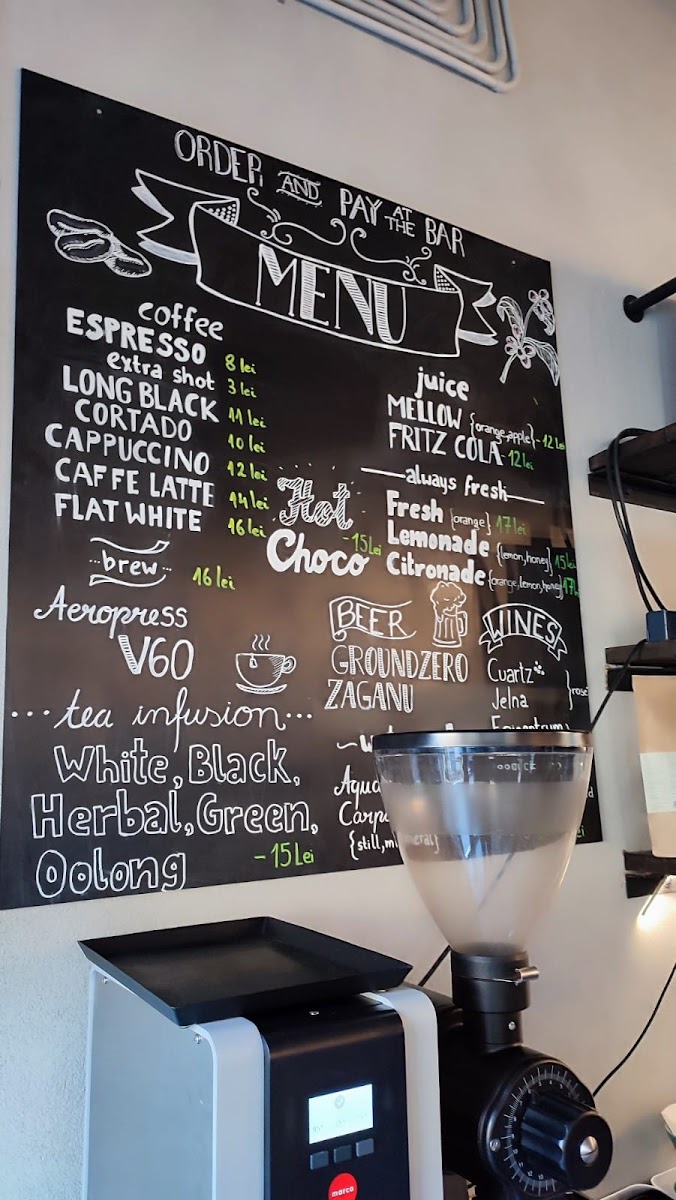 ORDER AND PAY AT THE BAR
MENU
coffee
ESPRESSO 8 lei
extra shot 3 lei
LONG BLACK 11 lei
CORTADO 10 lei
CAPPUCCINO 12 lei
CAFFE LATTE 14 lei
FLAT WHITE 16 lei
brew 16 lei
Aeropress
V60
...tea infusion...
White, Black,
Herbal, Green,
Oolong -15 Lei
Hot
Choco -15 Lei
juice
MELLOW {orange,apple} -12 Lei
FRITZ COLA -12 lei
always fresh
Fresh {orange} 17 lei
Lemonade {lemon,honey} 15 lei
Citronade {orange,lemon,honey} 17 l
BEER
GROUNDZERO
ZAGANU
WINES
Cuartz
Jelna } rose
Aqua
Carp
{still, mineral}
marco